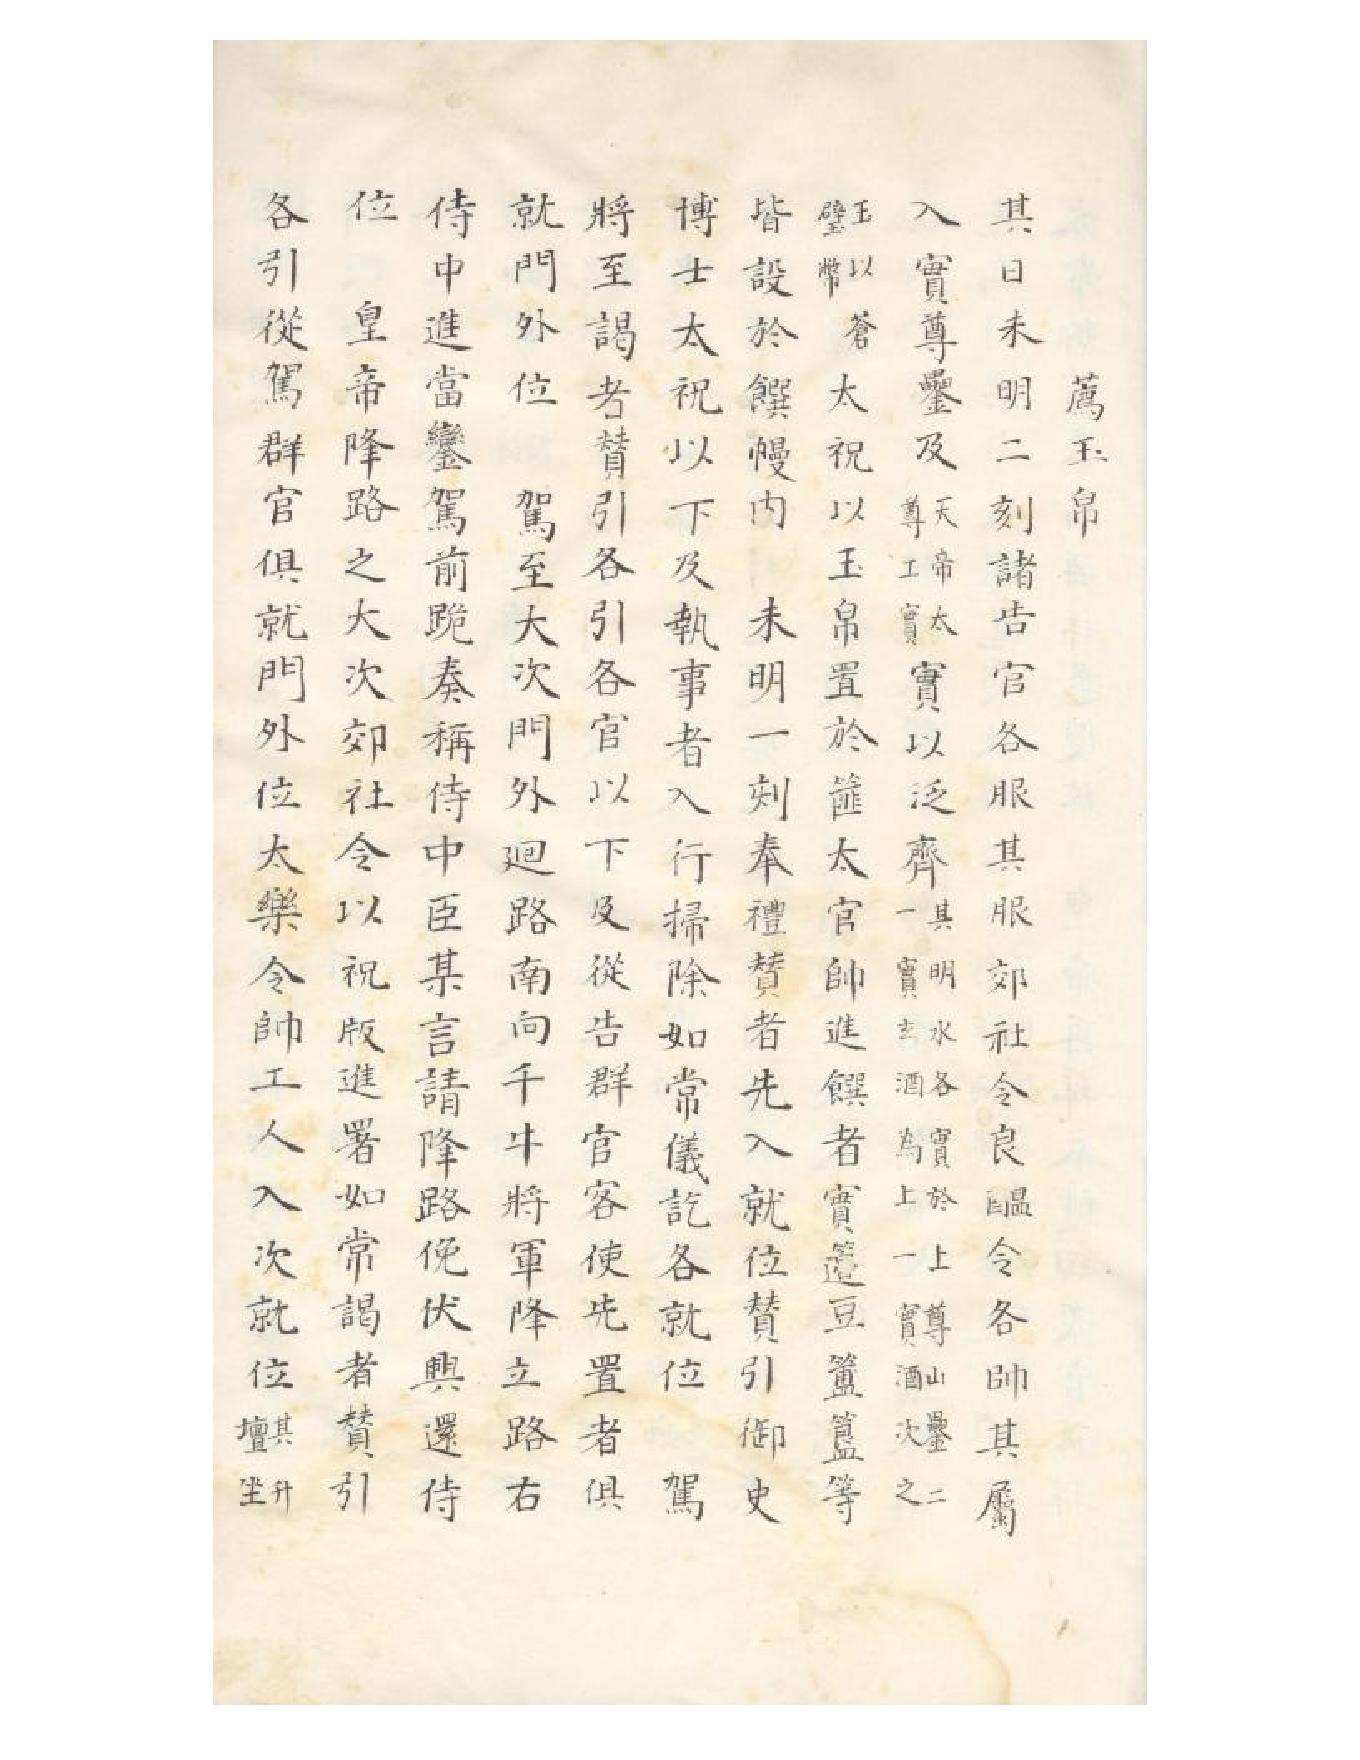 薦玉帛
其日未明二刻諸告官各服其服郊社令良醞令各帥其屬
入實尊罍及天帝太尊工實實以泛齊其明水各實於上尊山罍二一實玄酒為上一實酒次之
玉以蒼璧幣太祝以玉帛置於篚太官帥進饌者實籩豆簠簋等
皆設於饌幔內 未明一刻奉禮贊者先入就位贊引御史
博士太祝以下及執事者入行掃除如常儀訖各就位 駕
將至謁者贊引各引各官以下及從告群官客使先置者俱
就門外位 駕至大次門外迴路南向千牛將軍降立路右
侍中進當鑾駕前跪奏稱侍中臣某言請降路俛伏興還侍
位 皇帝降路之大次郊社令以祝版進署如常謁者贊引
各引從駕群官俱就門外位太樂令帥工人入次就位其升壇坐